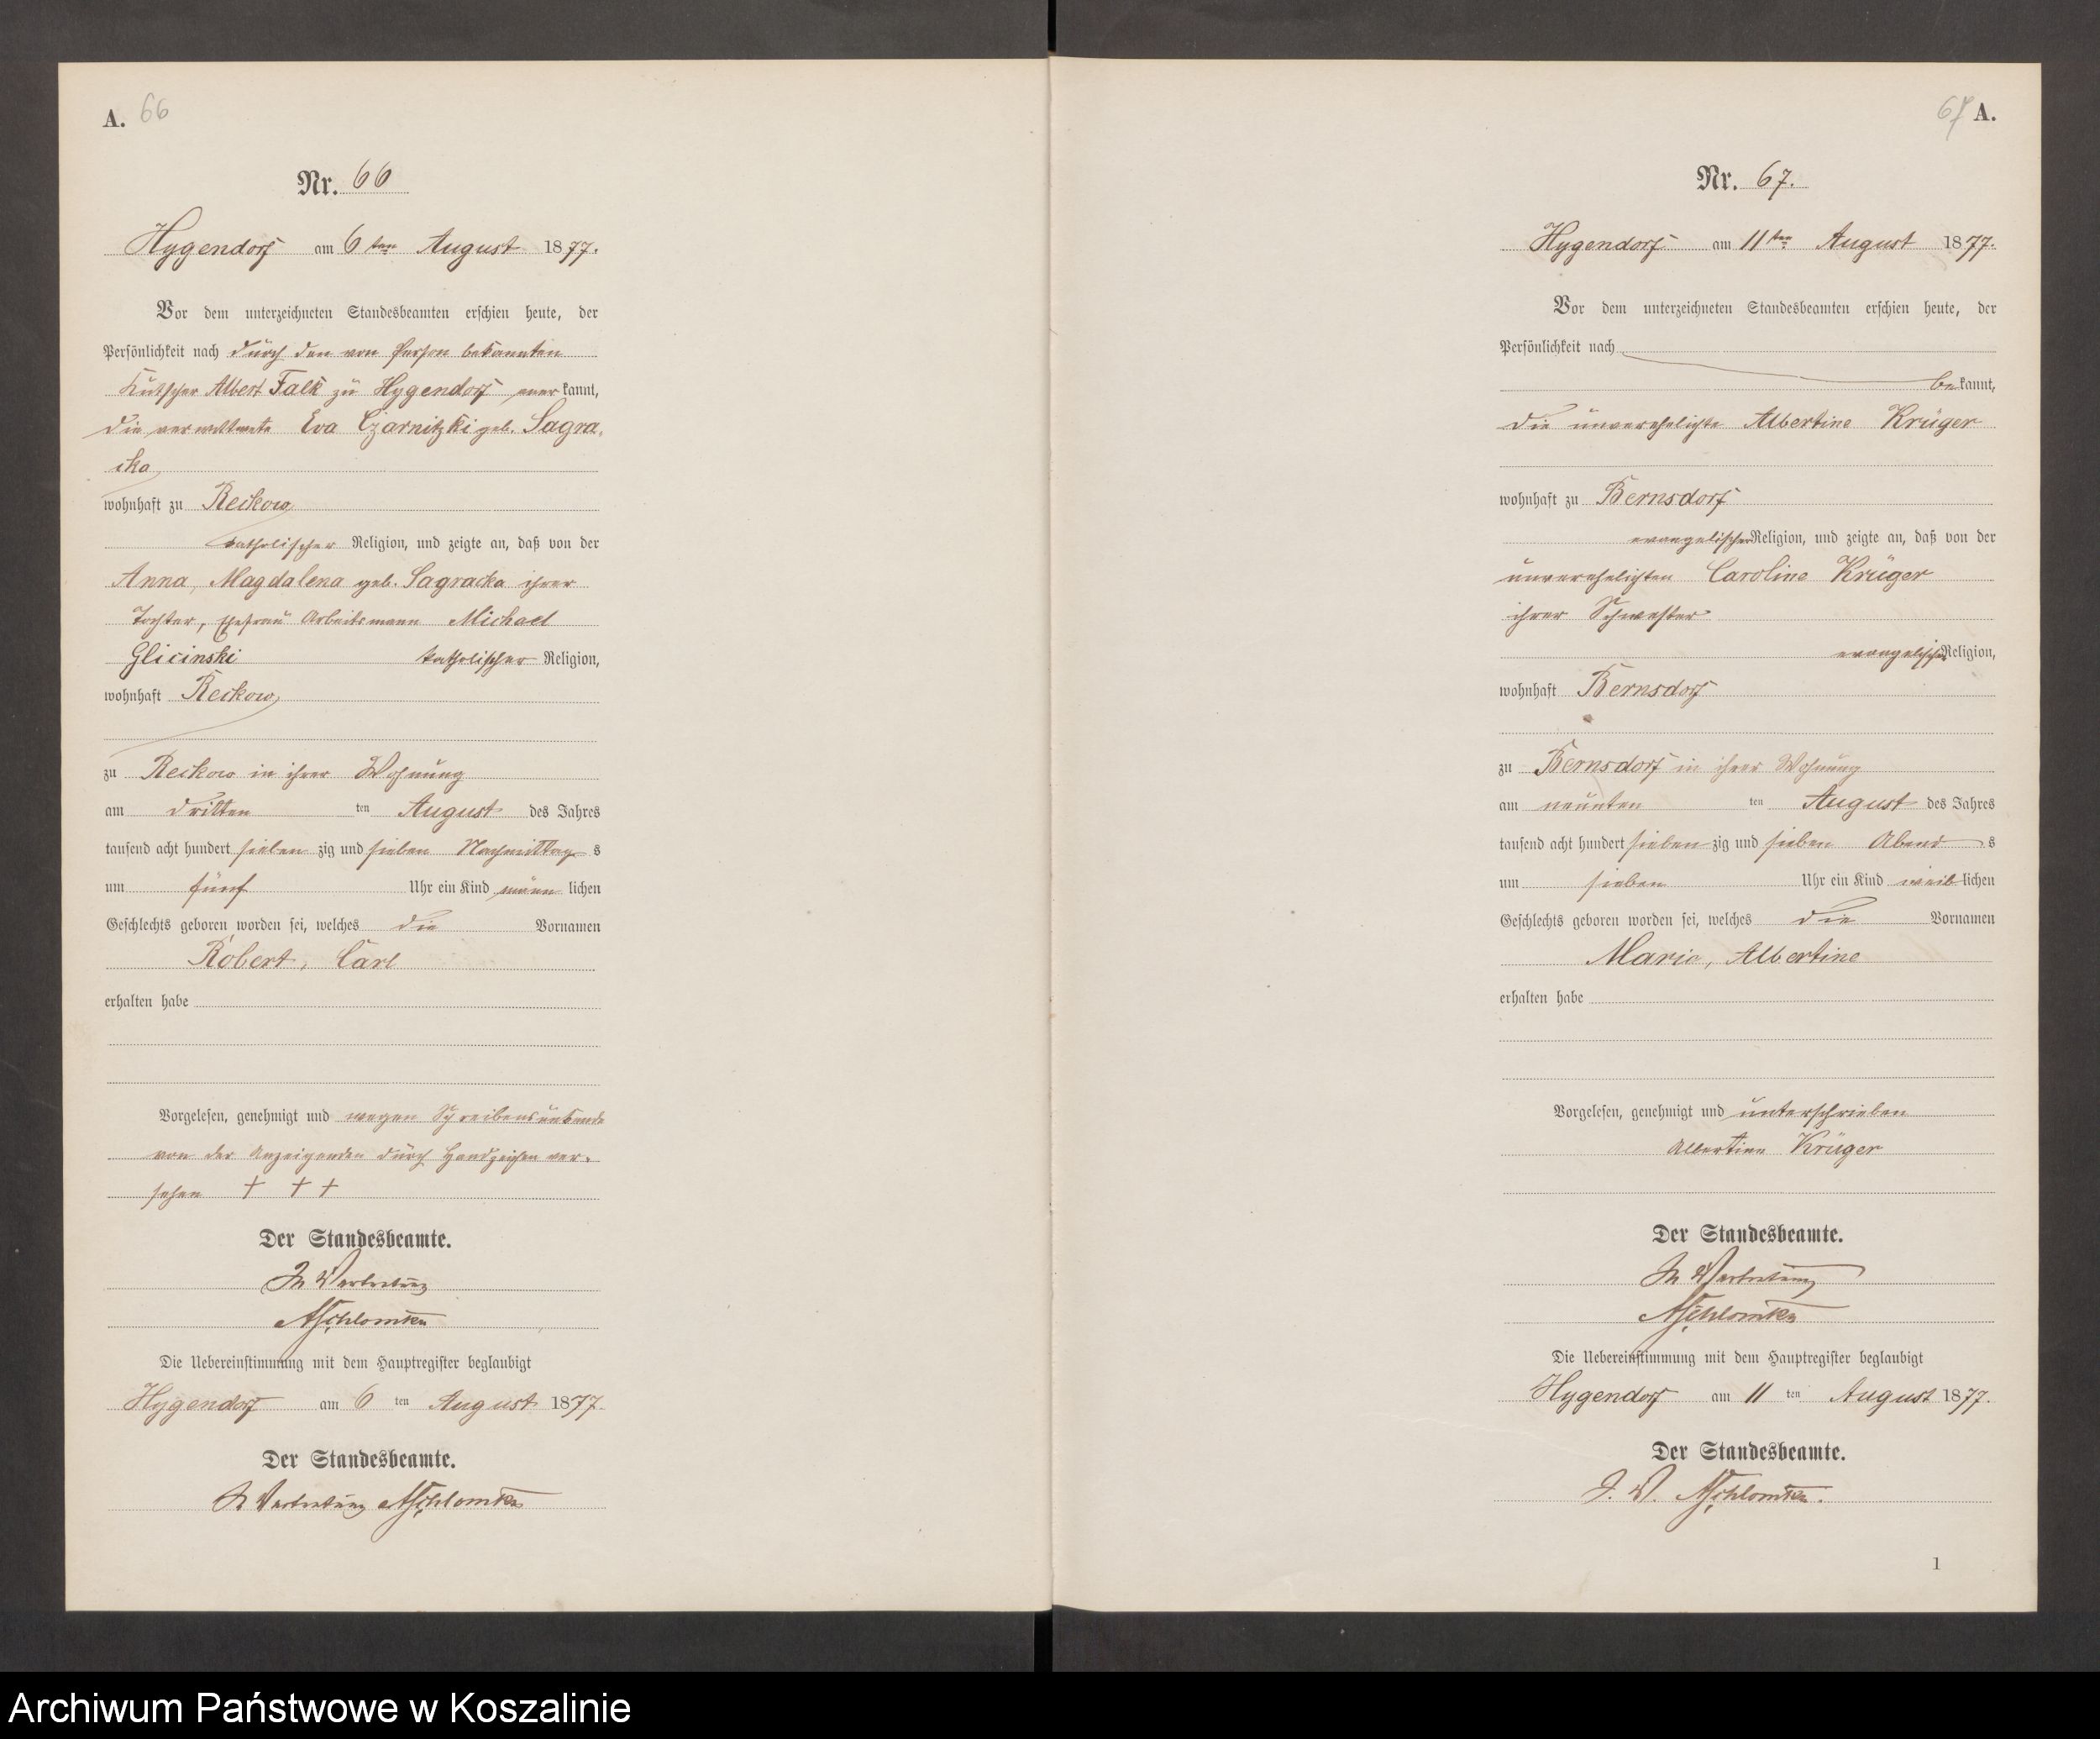 A. 66
Nr. 66
Hygendorf am 6ten August 1877.
Vor dem unterzeichneten Standesbeamten erschien heute, der
Persönlichkeit nach durch den von Person bekannten
Kutscher Albert Falk zu Hygendorf aner kannt,
die verwittwete Eva Czarnitzki geb. Sagra-
cka
wohnhaft zu Reckow
katholischer Religion, und zeigte an, daß von der
Anna, Magdalena geb. Sagracka ihrer
Tochter, Ehefrau Arbeitsmann Michael
Glicinski katholischer Religion,
wohnhaft Reckow
zu Reckow in ihrer Wohnung
am dritten ten August des Jahres
tausend acht hundert sieben zig und sieben Nachmittag s
um fünf Uhr ein Kind männ lichen
Geschlechts geboren worden sei, welches die Vornamen
Robert, Carl
erhalten habe
Vorgelesen, genehmigt und wegen Schreibensunkunde
von der Anzeigenden durch Handzeichen ver-
sehen + + +
Der Standesbeamte.
In Vertretung
Die Uebereinstimmung mit dem Hauptregister beglaubigt
Hygendorf am 6 ten August 1877
Der Standesbeamte.
In Vertretung
67 A.
Nr. 67.
Hygendorf am 11ten August 1877.
Vor dem unterzeichneten Standesbeamten erschien heute, der
Persönlichkeit nach
be kannt,
die unverehelichte Albertine Krüger
wohnhaft zu Bernsdorf
evangelischer Religion, und zeigte an, daß von der
unverehelichten Caroline Krüger
ihrer Schwester
evangelischer Religion,
wohnhaft Bernsdorf
zu Bernsdorf in ihrer Wohnung
am neunten ten August des Jahres
tausend acht hundert sieben zig und sieben Abend s
um sieben Uhr ein Kind weib lichen
Geschlechts geboren worden sei, welches die Vornamen
Marie, Albertine
erhalten habe
Vorgelesen, genehmigt und unterschrieben
Albertine Krüger
Der Standesbeamte.
In Vertretung
Die Uebereinstimmung mit dem Hauptregister beglaubigt
Hygendorf am 11 ten August 1877.
Der Standesbeamte.
I. V.
1
Archiwum Państwowe w Koszalinie